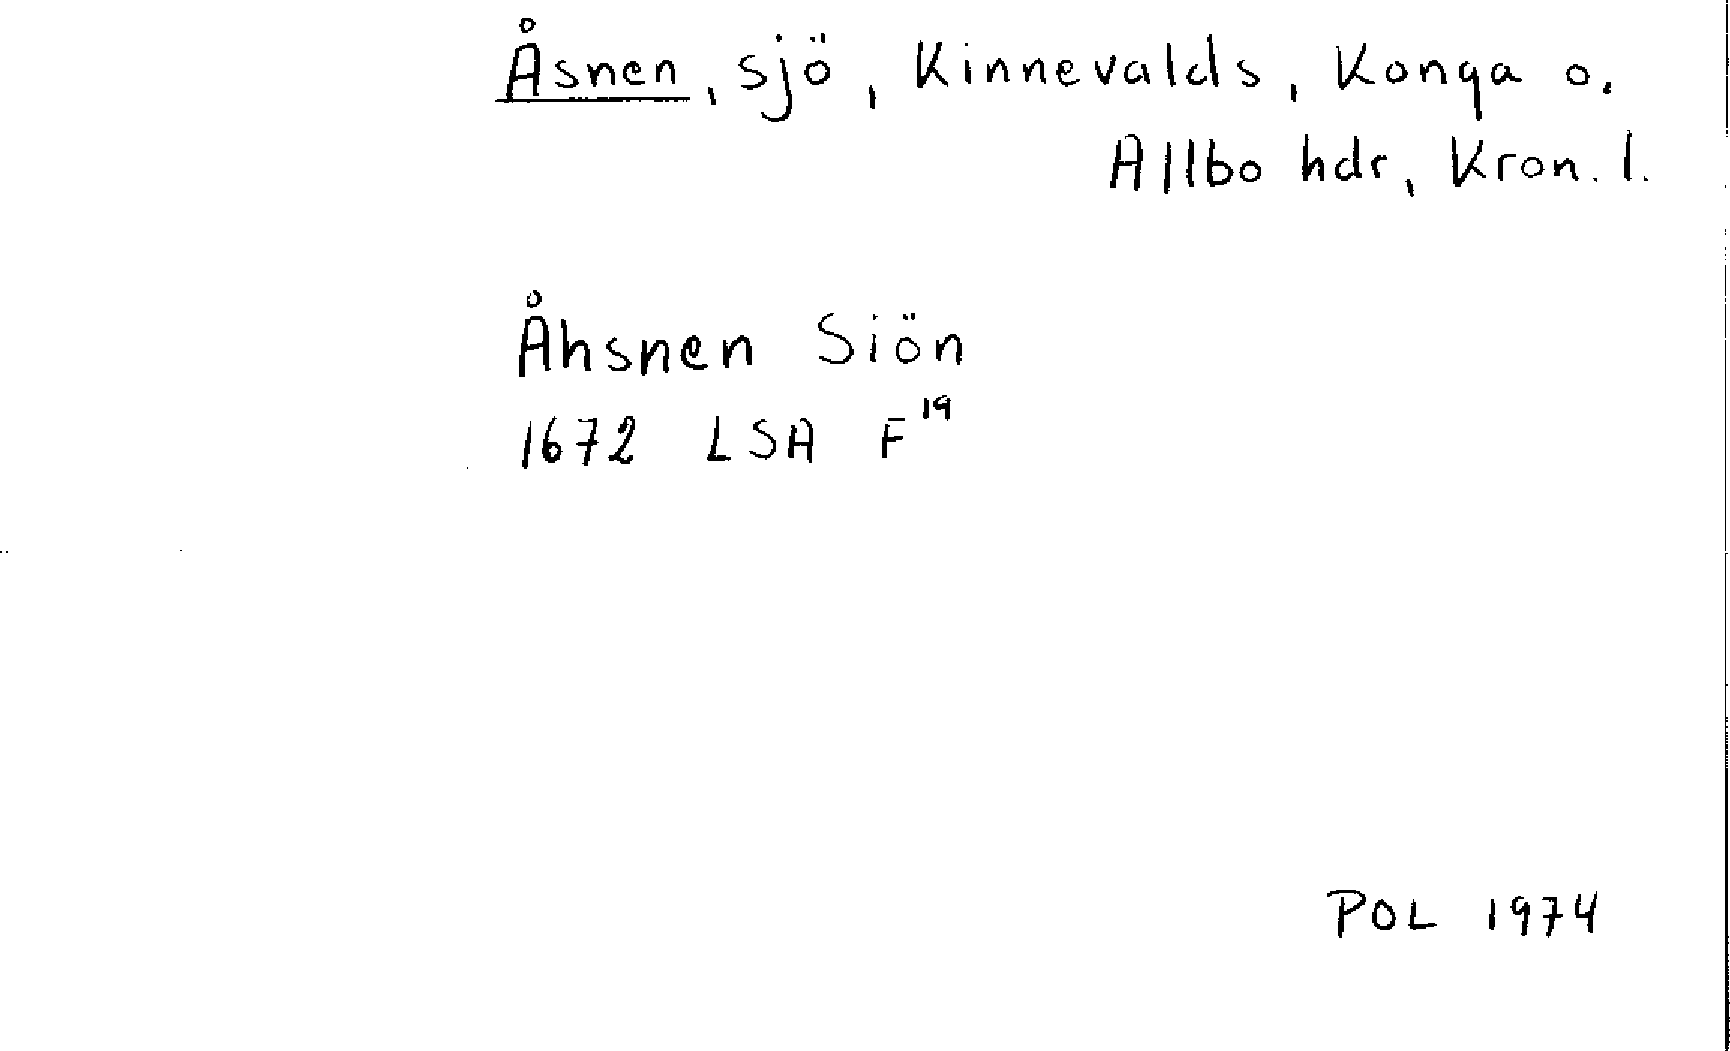 Åsnen, sjö, Kinnevalds, Konga o.
Allbo hdr, Kron. l.
Åhsnen Siön
1672 LSA F¹⁹
POL 1974